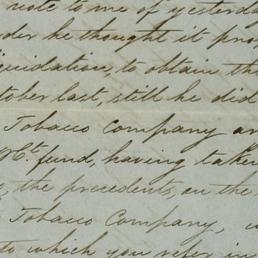 note to me of yesterda
der he thought it pro
quidation, to obtain th
tober last, still he did
Tobacco Company an
Ct. fund, having taken
the precedents, on the
Tobacco Company,
to which you refer in